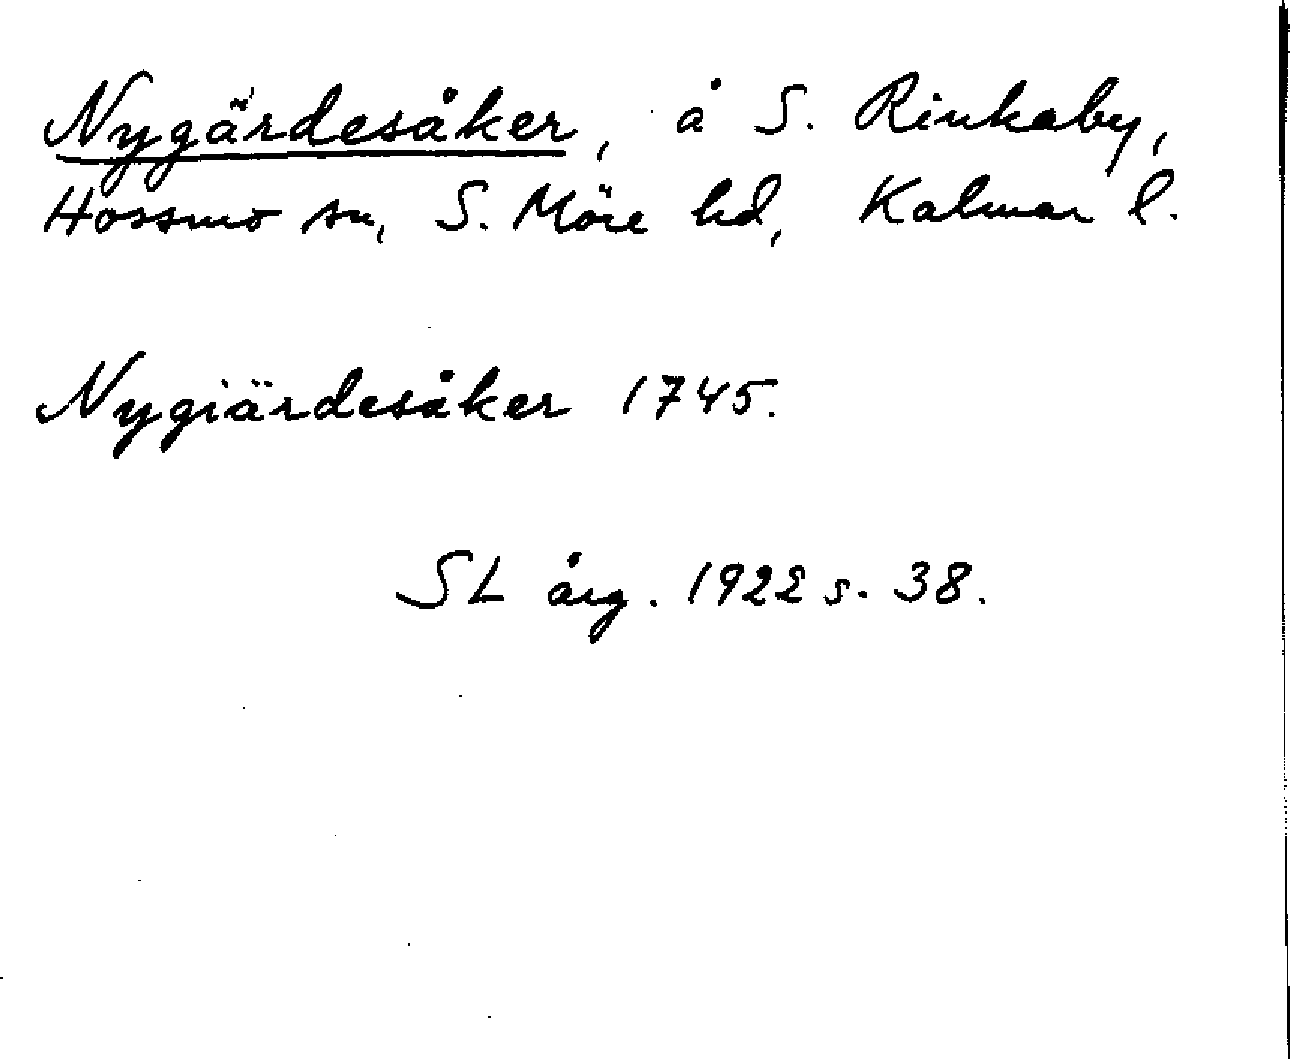 Nygärdesåker, å S. Rinkaby,
Hossmo sn, S. Möre hd, Kalmar l.
Nygiärdesåker 1745.
SL årg. 1922 s. 38.